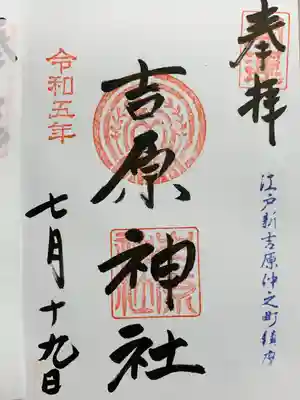 奉拝
江戸新吉原仲之町鎮守
吉原神社
令和五年
七月十九日